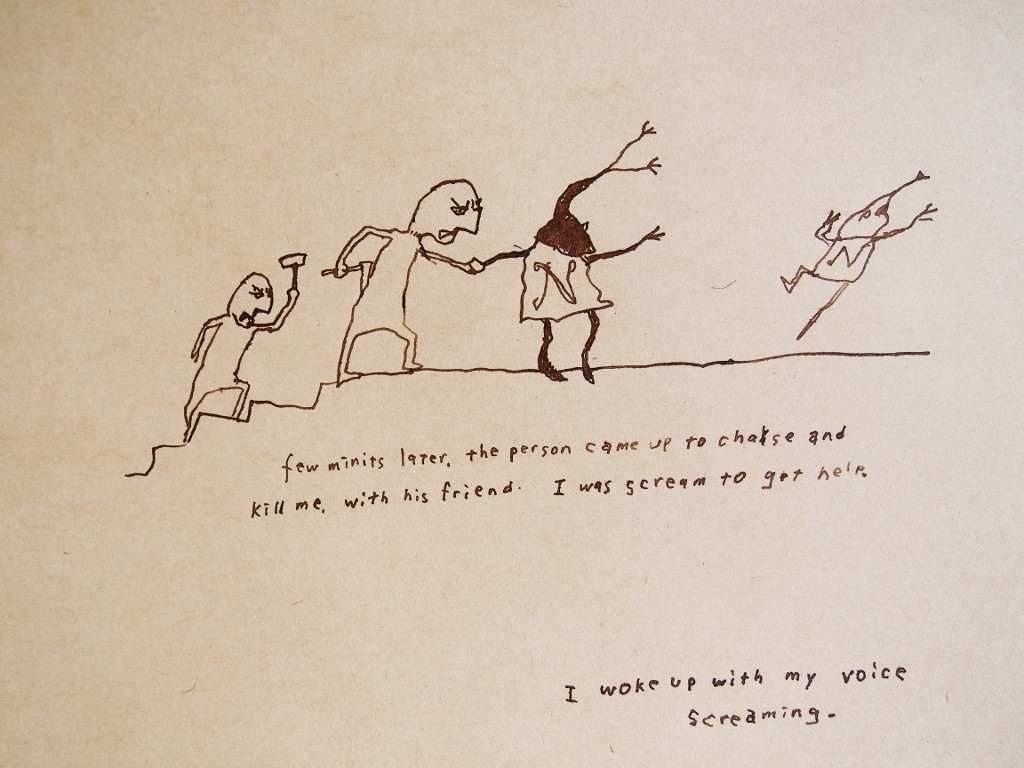 N
N
few minits later, the person came up to chakse and
kill me, with his friend. I was scream to get help.
I woke up with my voice
screaming.